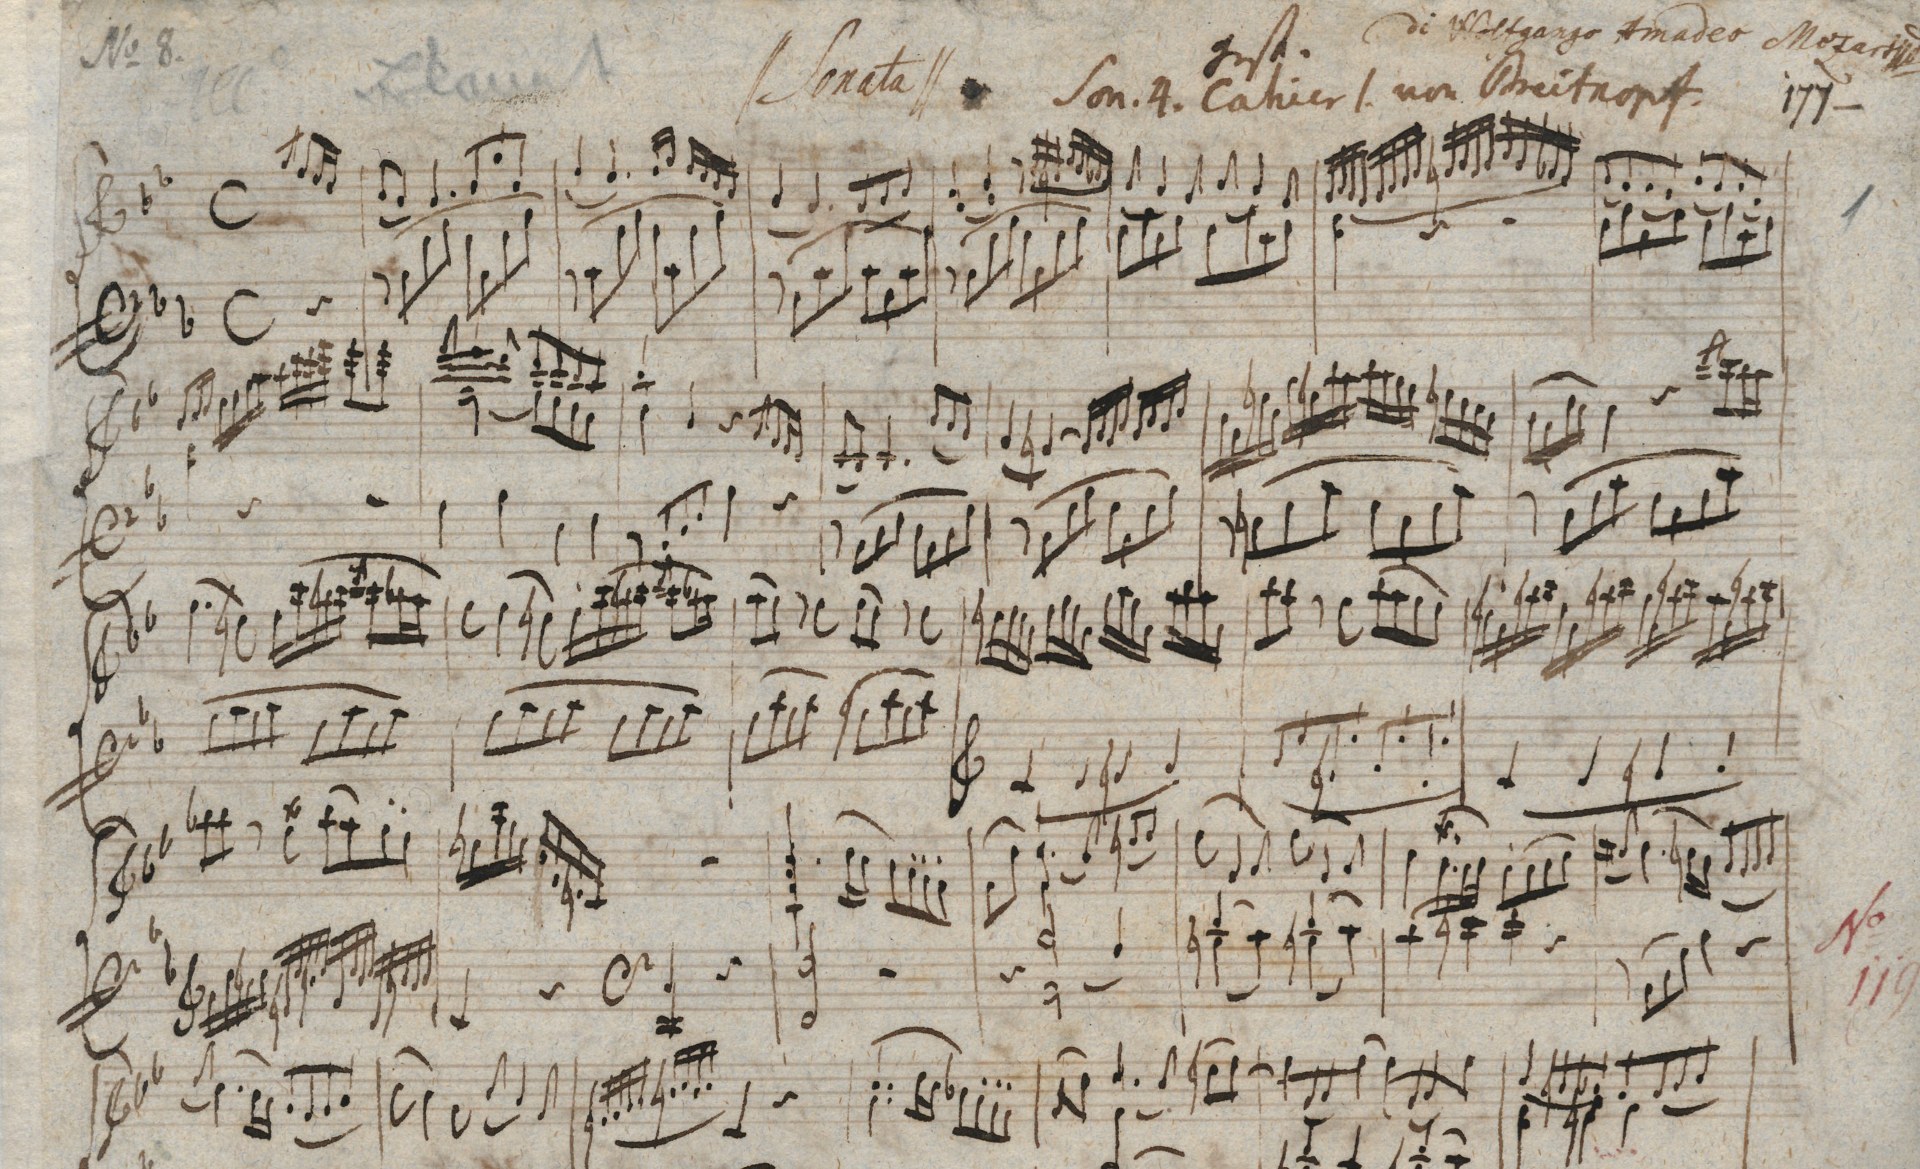 No 8.
Sonata
di Wolfgango Amadeo Mozart
Son. 4. Cahier 1. von Breitkopf.
177
1
No
119